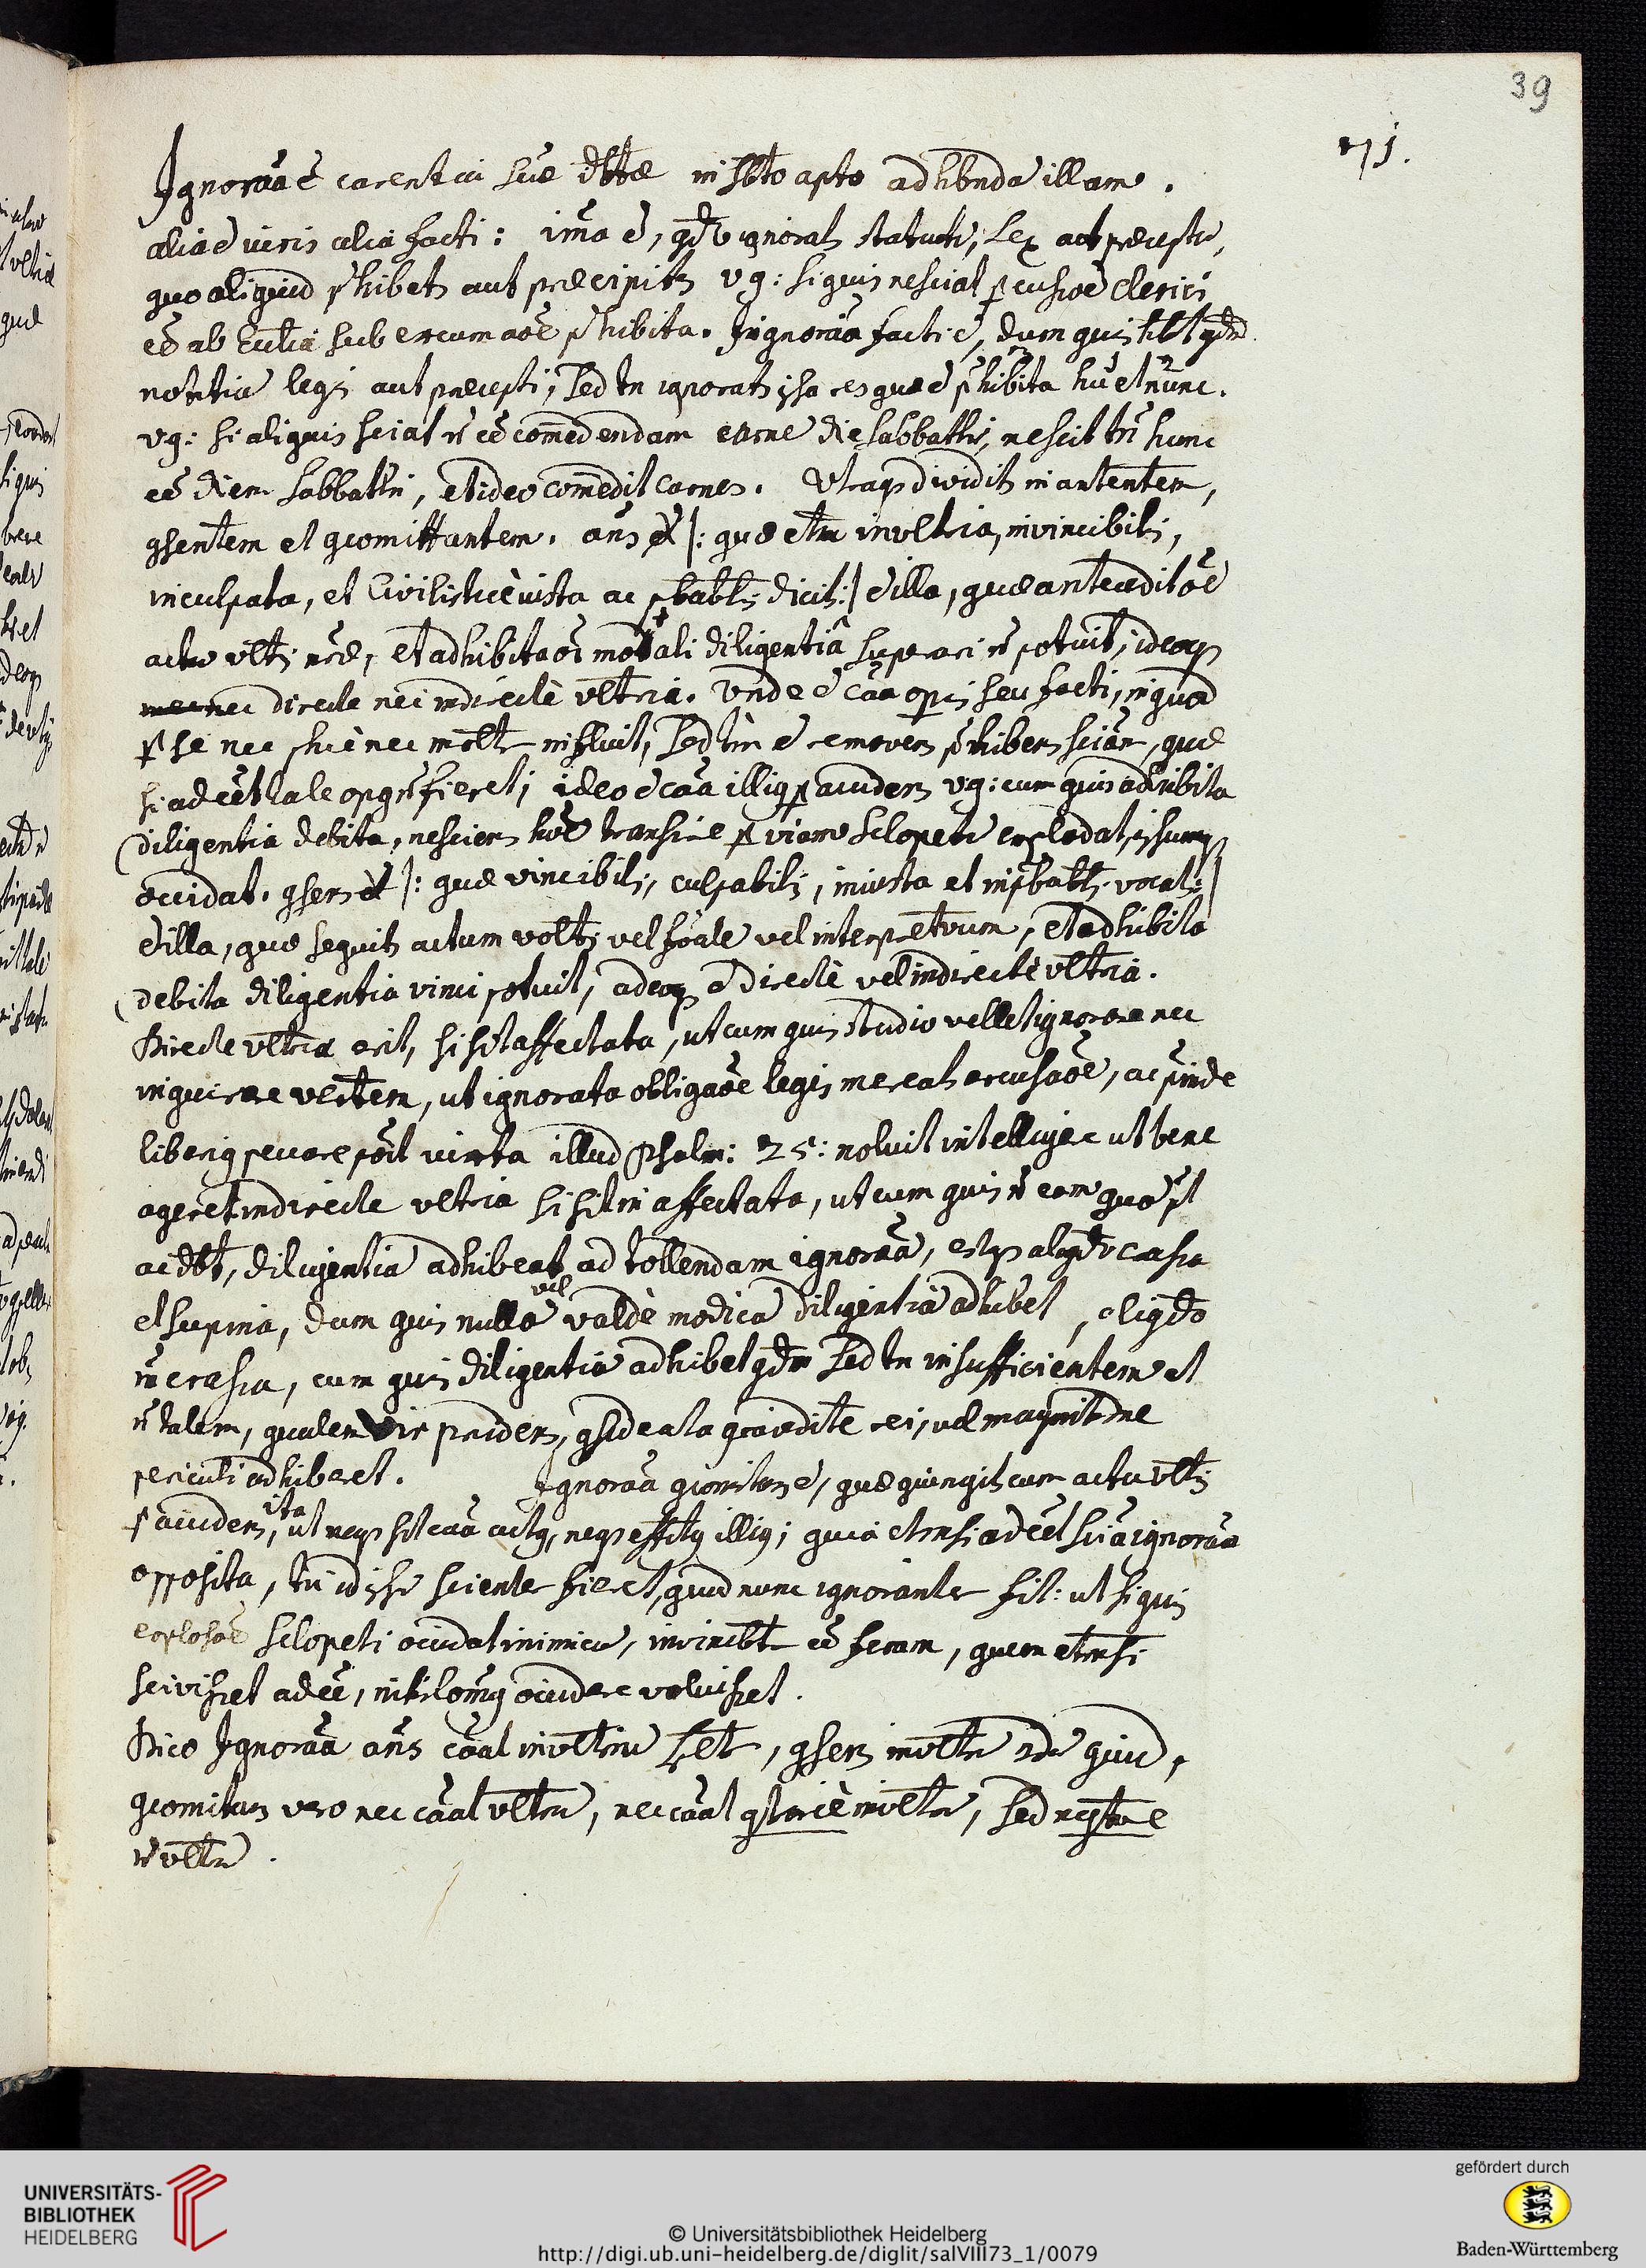 39
71.
Ignorãa ẽ carentia sciæ dbtæ in sbto apto ad hbnda illam.
alia ẽ iuris alia facti: ima ẽ, qdo ignorat statutũ, lex aut præceptũ,
quo aliquid phibet aut præcipit vg: si quis nesciat pcusioẽ clerici
eẽ ab Ecclia sub excumaõe phibita. Ignorãa facti ẽ, dum quis hbt qdm
notitiã legis aut præcepti, sed tn ignorat ipsa res quæ ẽ phibita hic et nunc.
vg: si aliquis sciat ñ eẽ comedendam carnẽ die sabbathi, nescit tñ hunc
eẽ diem sabbathi, et ideo comedit carnes. Utraqs dividit in antentem,
qsentem et qcomittantem. añs ẽ |: quæ etm invltria, invincibilis,
inculpata, et Civilisticè iusta ac pbabilis dicit :| ẽ illa, quæ antecedit oẽ
actũ vltis nræ, et adhibita oĩ morali diligentiâ superari ñ potuit, ideoqs
nec directe nec indirectè vltria. Unde ẽ cãa opis seu facti, in quod
p se nec phicè nec molr influit, sed tm ẽ removens phibens sciãm, quæ
si adeẽt tale opq ñ fieret; ideo ẽ cãa illiq p accidens vg: cum quis adhibita
diligentia debita, nesciens hoẽ transire p viam sclopetũ explodat, ipsumqs
occidat. qsens ẽ |: quæ vincibilis, culpabilis, iniusta et inpbablis vocat :|
ẽ illa, quæ sequit actum voltis vel foãle vel interpretvum, et adhibita
debita diligentia vinci potuit, adeoqs ẽ directè vel indirectè vltria.
Directe vltria erit, si sit affectata, ut cum quis studio vellet ignorare nec
inquirere vertem, ut ignorata obligaõe legis mereat excusaõe, ac pinde
liberiq peccare poĩt iuxta illud Psalm: 35: noluit intelligere ut bene
ageret indirecte vltria si sit in affectata, ut cum quis ñ eam quã pt
ac dbt, diligentiã adhibeat ad tollendam ignorãa, estqs alqdo crassa
et supina, dum quis nullã vel valdè modicã diligentiã adhibet, aliqdo
ñ crassa, cum quis diligentiã adhibet qdm sed tn insufficientem et
ñ talem, qualem vir prudens, qsiderata qcondite rei, vel magnitdne
periculi adhiberet. Ignorãa qcomitans ẽ, quæ qiungit cum actu vltis
p accidens, ita ut neqs sit cãa actq, neqs effctq illiq; quia etmsi adeẽt sciã ignorãa
opposita, tñ id ipsũ scienter fieret, quod nunc ignoranter fit: ut si quis
explosoẽ sclopeti occidat inimicũ, invincblr eẽ feram, quem etmsi
scivisset adeẽ, nihilomiq occidere voluisset.
Dico Ignorãa añs cãat invltriũ slr, qsens invltriũ 2dũ quid,
qcomitans vero nec cãat vltriũ, nec cãat qtrariè invltriũ, sed neqstive
ñ vltriũ.
UNIVERSITÄTS-
BIBLIOTHEK
HEIDELBERG
© Universitätsbibliothek Heidelberg
http://digi.ub.uni-heidelberg.de/diglit/salVIII73_1/0079
gefördert durch
Baden-Württemberg